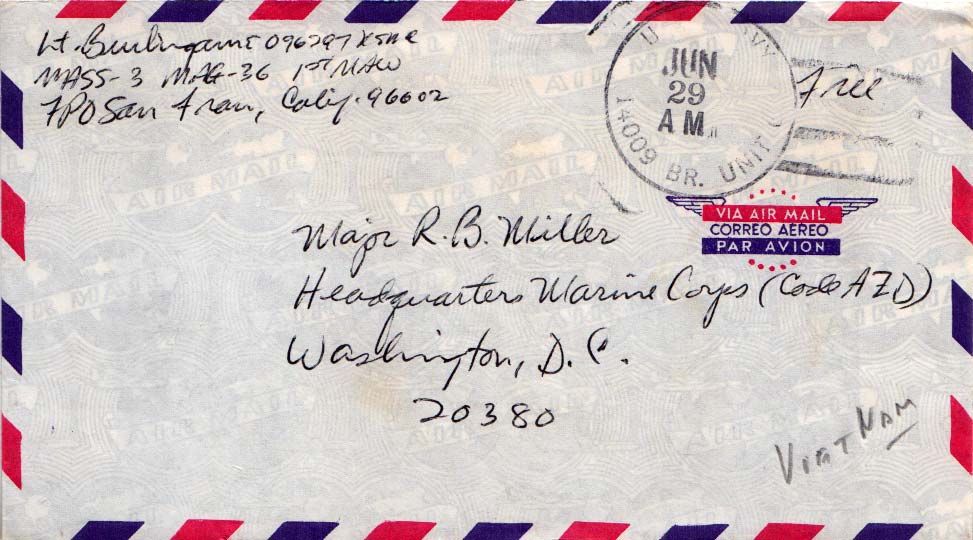 Lt. Burlingame 096297 USMC
MASS-3 MAG-36 1st MAW
FPO San Fran, Calif. 96602
U.S. NAVY
JUN
29
A M
14009 BR. UNIT
Free
VIA AIR MAIL
CORREO AEREO
PAR AVION
Major R. B. Miller
Headquarters Marine Corps (Code AZD)
Washington, D. C.
20380
VIET NAM
AIR MAIL